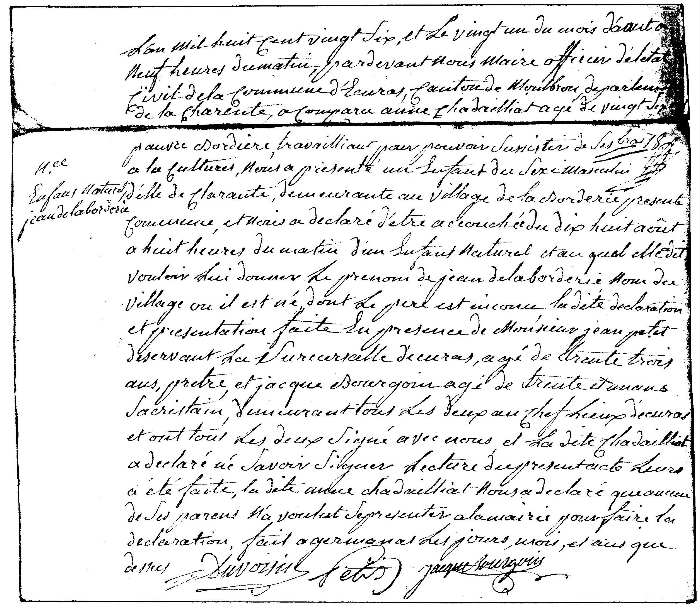 L'an mil huit cent vingt six, et le vingt un du mois d'aout a
neuf heures du matin pardevant nous maire officier de l'etat
civil de la commune d'Ecuras, canton de Monbron departement
de la Charente, a comparu anne Chadailliat agé de vingt six
pauvre Bordiere travailliant pour pouvoir sussister de ses bras
a la culture, Nous a présenté un Enfant du sexe masculin
Nce
Enfans Naturel
jean de la borderie
fille de Clarante, demeurante au village de la Borderie presente
commune, et Nous a declaré d'être accouchée du dix huit août
a huit heures du matin d'un Enfant Naturel et au quel elle dit
vouloir lui donner Le prenom de jean de la borderie Nom du
village ou il est né, dont Le pere est inconnu la dite declaration
et presentation faite En presence de Monsieur jean petit
desservant La Surcursalle d'ecuras, agé de trente trois
ans, pretre et jacque Bourgoin agé de trente et un ans
Sacristain, demeurant tous Les deux au chef Lieux d'ecuras
et ont tous Les deux Signé avec nous et La dite Chadailliat
a declaré ne Savoir Signer Lecture du present acte Leurs
a été faite, la dite anne chadailliat Nous a declaré que aucun
de Ses parens N'a voulut se presenter a la mairie pour faire la
declaration, fait a germanas Les jours, mois, et ans que
dessus
Petit jacque bourgoin